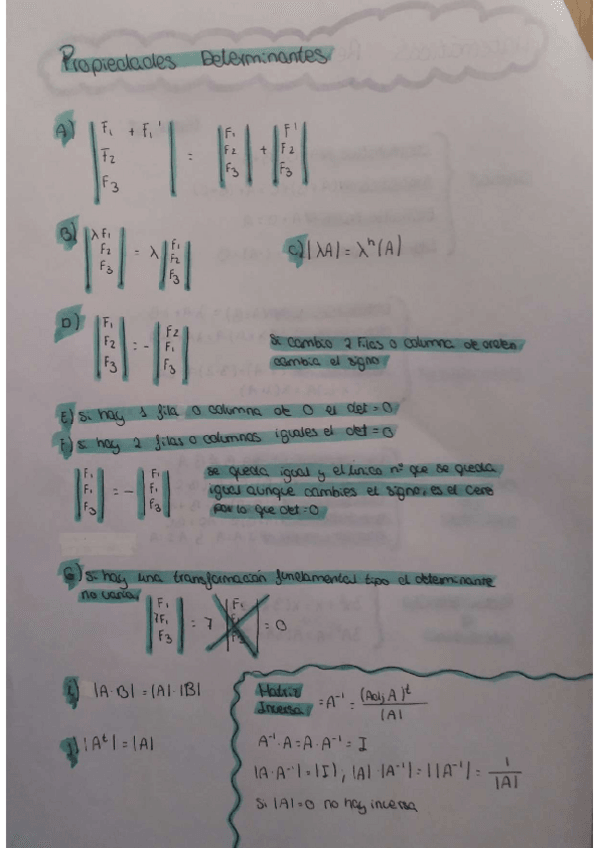 Propiedades Determinantes
A) |F₁ + F₁'
F₂
F₃| = |F₁
F₂
F₃| + |F'
F₂
F₃|
B) |λF₁
F₂
F₃| = λ |F₁
F₂
F₃|
C) |λA| = λⁿ(A)
D) |F₁
F₂
F₃| = - |F₂
F₁
F₃|
Si cambio 2 filas o columna de orden
cambia el signo
E) si hay 1 fila o columna de 0 el det = 0
F) si hay 2 filas o columnas iguales el det = 0
|F₁
F₁
F₃| = - |F₁
F₁
F₃|
se queda igual y el único nº que se queda
igual aunque cambies el signo, es el cero
por lo que det = 0
G) si hay una transformación fundamental tipo el determinante
no varía
|F₁
7F₁
F₃| = 7 |F₁
F₃| = 0
|A·B| = |A|·|B|
J) |Aᵗ| = |A|
Matriz
Inversa = A⁻¹ = (Adj A)ᵗ / |A|
A⁻¹·A = A·A⁻¹ = I
|A·A⁻¹| = |I|, |A|·|A⁻¹| = 1 |A⁻¹| = 1 / |A|
Si |A| = 0 no hay inversa